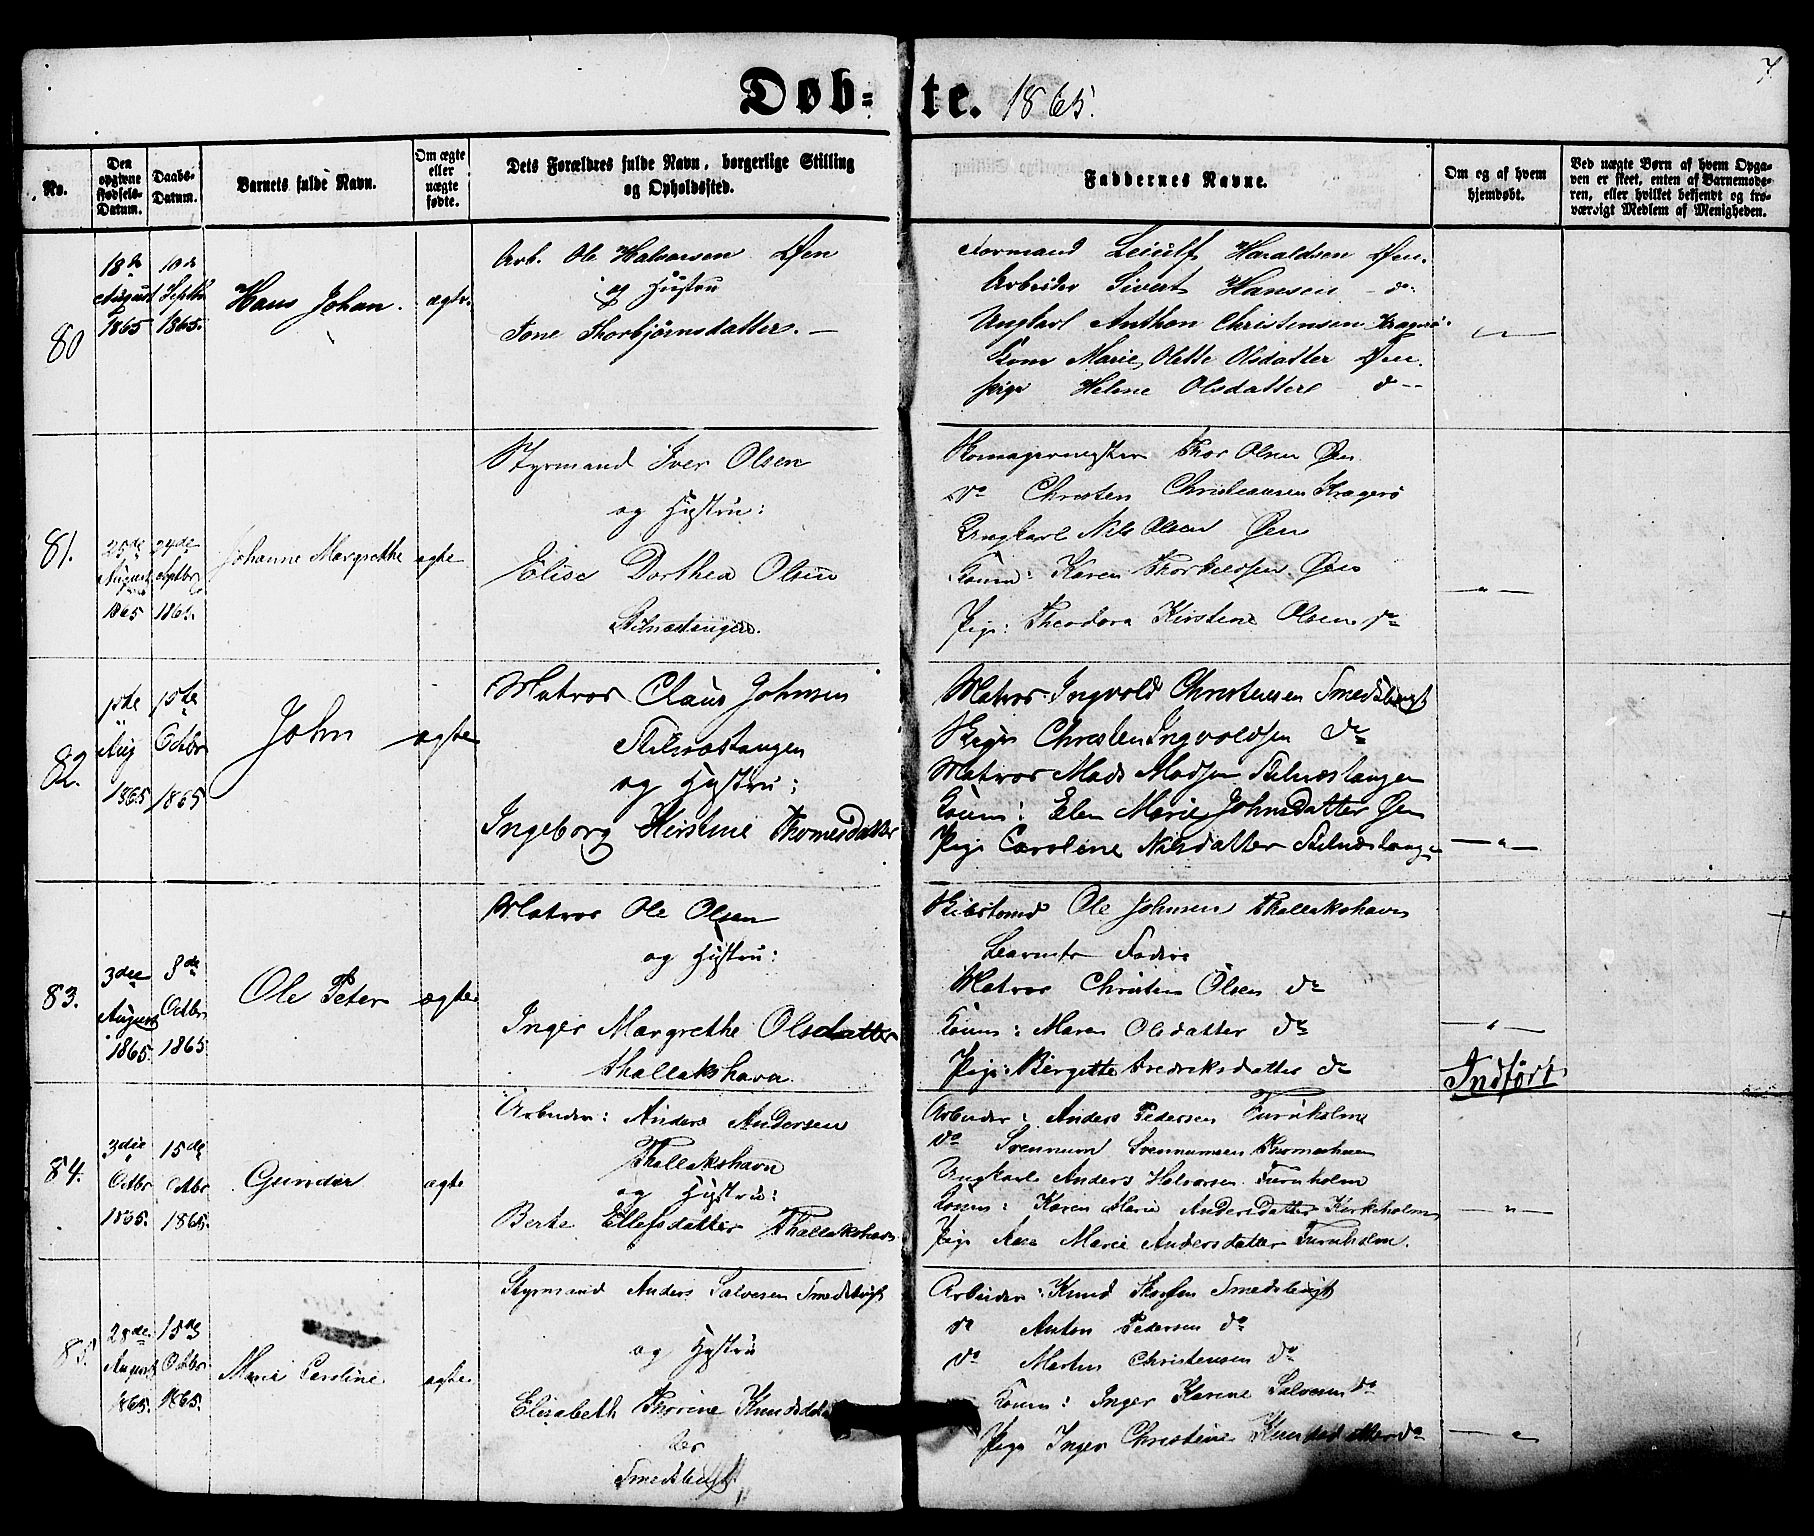 Døb-te. 1865.
7
No.
Den opgivne Fødsels-Datum.
Daabs-Datum.
Barnets fulde Navn.
Om ægte eller uægte fødte.
Dets Forældres fulde Navn, borgerlige Stilling og Opholdssted.
Faddernes Navne.
Om og af hvem hjemdøbt.
Ved uægte Børn af hvem Opga-
ven er skeet, enten af Barnemode-
ren, eller hvilket bekjendt og tro-
værdigt Medlem af Menigheden.
80
18de August 1865
10de Septbr 1865.
Hans Johan.
ægte.
Arb. Ole Halvorsen Øen
og Hustru
Tone Thorbjørnsdatter. —
Formand Leiulf Haraldsen Øen.
Arbeider Sivert Hansen do
Ungkarl Anthon Christensen Kragerø.
Kone Marie Olette Olsdatter Øen.
Pige Helene Olsdatter do
— " —
81.
25de August 1865
24de Septbr 1865.
Johanne Margrethe
ægte
Styrmand Iver Olsen
og Hustru:
Elise Dorthea Olsen
Stilnæstangen.
Skomagermester Thor Olsen Øen
do Christen Christiansen Kragerø
Ungkarl Nils Olsen Øen
Koune: Karen Thorkildsen Øen
Pige: Theodora Kirstene Olsen do
— " —
82.
15de Aug 1865
15de Octbr 1865
John
ægte
Matros Claus Johnsen
Stilnæstangen
og Hustru:
Ingeborg Kirstine Thomesdatter
Matros Ingvold Christensen Smedsbugt
Christen Ingvoldsen do
Matros Mads Madsen Stilnæstangen
Koune: Elen Marie Johnsdatter Øen
Pige Caroline Nilsdatter Stilnæstangen
— " —
83.
3die August 1865.
8de Octbr 1865
Ole Peter
ægte
Matros Ole Olsen
og Hustru:
Inger Margrethe Olsdatter
Thallakshavn
Ole Johnsen Thallakshavn
Barnets Fader
Matros Christen Olsen do
Koune: Maren Olsdatter do
Pige: Birgette Fredriksdatter do
— " —
Indført
84.
3die Octbr 1865.
15de Octbr 1865.
Gunder
ægte
Arbeider: Anders Andersen
Thallakshavn
og Hustru:
Berte Ellefsdatter Thallakshavn
Arbeider: Anders Pedersen Furuholmen
do Svennum Svennumsen
Ungkarl Anders Halvorsen Furuholm
Koune: Karen Marie Andersdatter Kirkeholmen
Pige Ane Marie Andersdatter Furuholm.
— " —
85.
28de August 1865.
15de Octbr 1865.
Marie Caroline
ægte
Styrmand Anders Salvesen Smedsbugt
og Hustru
Elisabeth Thorine Knudsdat
ter
Smedsbugt
Arbeider: Knud Smedsbugt
do Anton Pedersen do
do Morten Christensen do
Koune: Inger Karine Salvesen do
Pige Inger Christine Knudsdatter do
— " —